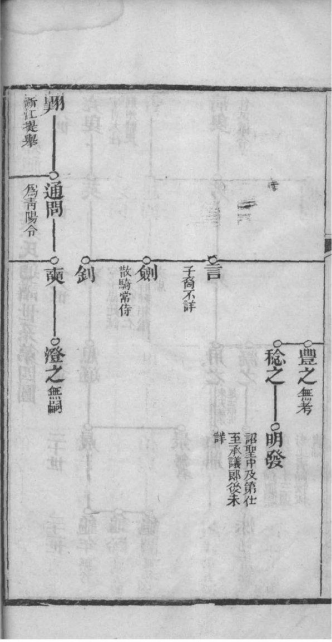 豐之 無考
稔之
明發
詔聖中及第仕
至承議郎後未
詳
言
子裔不詳
劍
散騎常侍
釗
奭
澄之 無嗣
通問
為靑陽令
浙江提舉